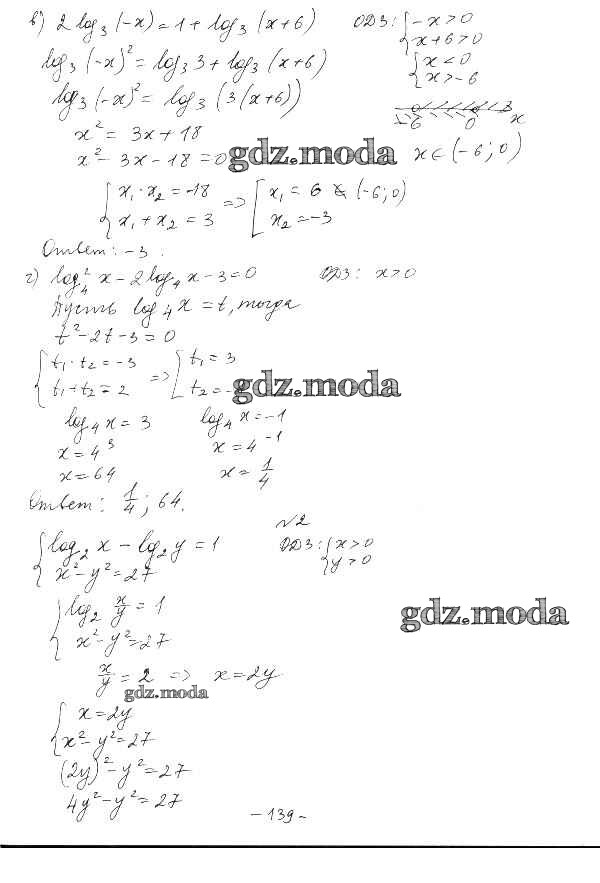 в) 2 log₃ (-x) = 1 + log₃ (x+6) ОДЗ: { -x > 0
x+6 > 0
log₃ (-x)² = log₃ 3 + log₃ (x+6) { x < 0
x > -6
log₃ (-x)² = log₃ (3(x+6))
-6 0 x
x² = 3x + 18
x² - 3x - 18 = 0 gdz.moda x ∈ (-6; 0)
{ x₁ · x₂ = -18 => [ x₁ = 6 ∉ (-6; 0)
x₁ + x₂ = 3 x₂ = -3
Ответ: -3.
г) log₄² x - 2 log₄ x - 3 = 0 ОДЗ: x > 0
Пусть log₄ x = t, тогда
t² - 2t - 3 = 0
{ t₁ · t₂ = -3 => [ t₁ = 3
t₁ + t₂ = 2 t₂ = - gdz.moda
log₄ x = 3 log₄ x = -1
x = 4³ x = 4⁻¹
x = 64 x = 1/4
Ответ: 1/4; 64.
№2
{ log₂ x - log₂ y = 1 ОДЗ: { x > 0
x² - y² = 27 y > 0
{ log₂ x/y = 1
gdz.moda
x² - y² = 27
x/y = 2 => x = 2y
gdz.moda
{ x = 2y
x² - y² = 27
(2y)² - y² = 27
4y² - y² = 27
- 139 -